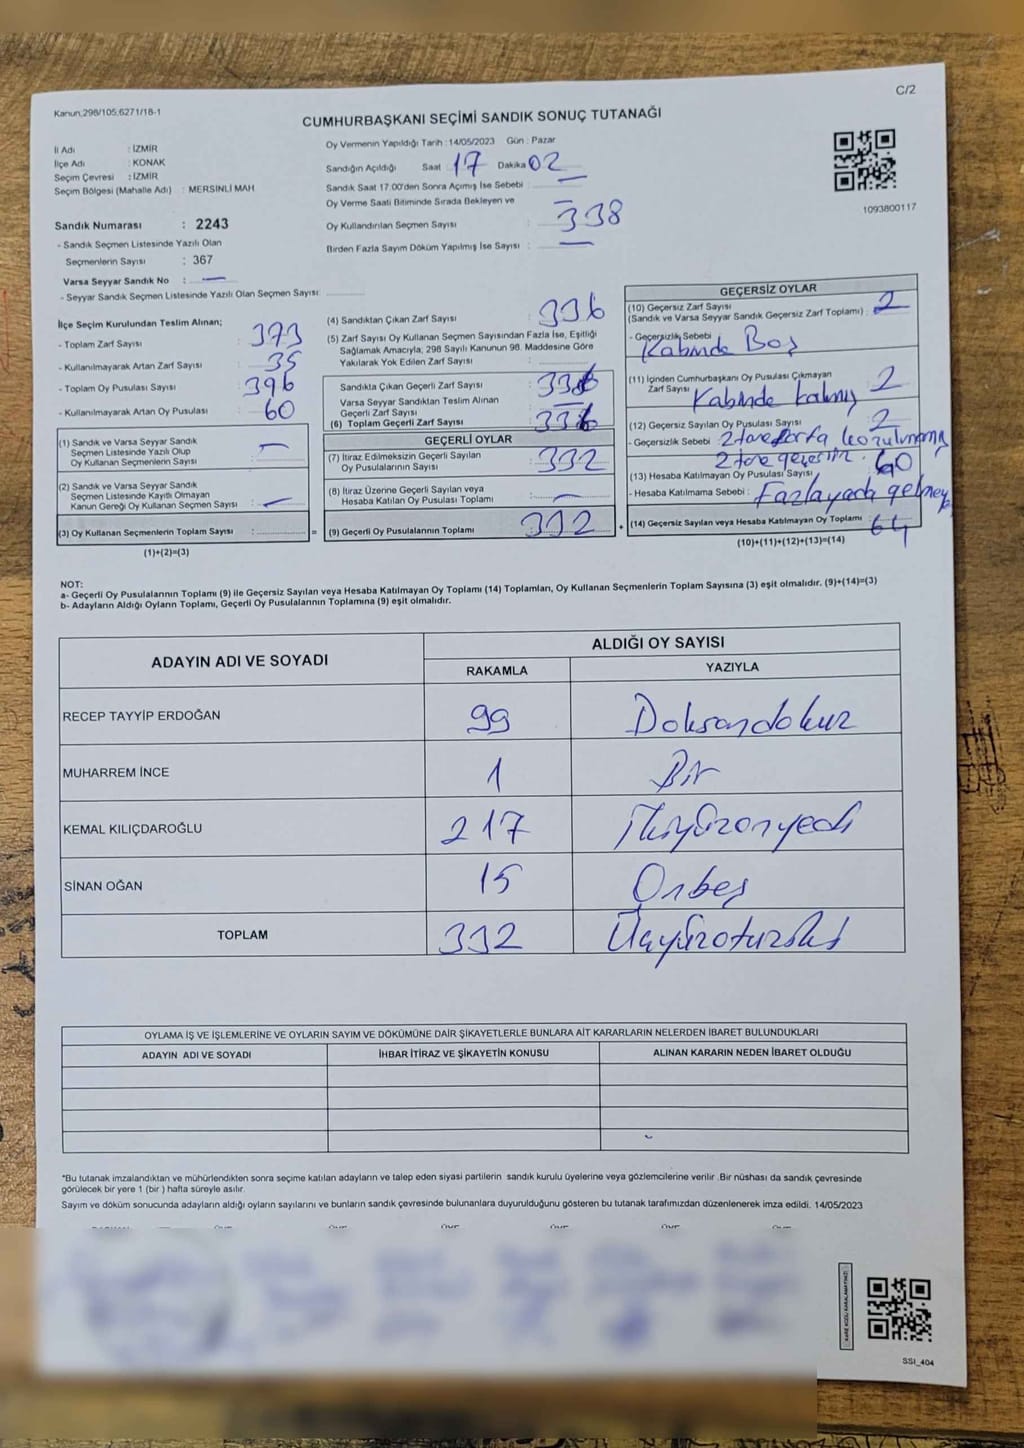 C/2
Kanun.298/105,6271/18-1
CUMHURBAŞKANI SEÇİMİ SANDIK SONUÇ TUTANAĞI
İl Adı : İZMİR
İlçe Adı : KONAK
Seçim Çevresi : İZMİR
Seçim Bölgesi (Mahalle Adı) : MERSİNLİ MAH
Sandık Numarası : 2243
- Sandık Seçmen Listesinde Yazılı Olan
Seçmenlerin Sayısı : 367
Varsa Seyyar Sandık No : —
- Seyyar Sandık Seçmen Listesinde Yazılı Olan Seçmen Sayısı:
Oy Vermenin Yapıldığı Tarih : 14/05/2023 Gün : Pazar
Sandığın Açıldığı Saat : 17 Dakika 02
Sandık Saat 17:00'den Sonra Açımış İse Sebebi : —
Oy Verme Saati Bitiminde Sırada Bekleyen ve : —
Oy Kullandırılan Seçmen Sayısı : 338
Birden Fazla Sayım Döküm Yapılmış İse Sayısı : —
1093800117
İlçe Seçim Kurulundan Teslim Alınan;
- Toplam Zarf Sayısı : 373
- Kullanılmayarak Artan Zarf Sayısı : 35
- Toplam Oy Pusulası Sayısı : 396
- Kullanılmayarak Artan Oy Pusulası : 60
(1) Sandık ve Varsa Seyyar Sandık
Seçmen Listesinde Yazılı Olup
Oy Kullanan Seçmenlerin Sayısı : —
(2) Sandık ve Varsa Seyyar Sandık
Seçmen Listesinde Kayıtlı Olmayan
Kanun Gereği Oy Kullanan Seçmen Sayısı : —
(3) Oy Kullanan Seçmenlerin Toplam Sayısı : =
(1)+(2)=(3)
(4) Sandıktan Çıkan Zarf Sayısı : 336
(5) Zarf Sayısı Oy Kullanan Seçmen Sayısından Fazla İse, Eşitliği
Sağlamak Amacıyla, 298 Sayılı Kanunun 98. Maddesine Göre
Yakılarak Yok Edilen Zarf Sayısı :
Sandıkta Çıkan Geçerli Zarf Sayısı : 336
Varsa Seyyar Sandıktan Teslim Alınan
Geçerli Zarf Sayısı : —
(6) Toplam Geçerli Zarf Sayısı : 336
GEÇERLİ OYLAR
(7) İtiraz Edilmeksizin Geçerli Sayılan
Oy Pusulalarının Sayısı : 332
(8) İtiraz Üzerine Geçerli Sayılan veya
Hesaba Katılan Oy Pusulası Toplamı : —
(9) Geçerli Oy Pusulalarının Toplamı : 332 +
GEÇERSİZ OYLAR
(10) Geçersiz Zarf Sayısı
(Sandık ve Varsa Seyyar Sandık Geçersiz Zarf Toplamı) : 2
- Geçersizlik Sebebi :
Kabinde Boş
(11) İçinden Cumhurbaşkanı Oy Pusulası Çıkmayan
Zarf Sayısı : 2
Kabinde kalmış
(12) Geçersiz Sayılan Oy Pusulası Sayısı : 2
- Geçersizlik Sebebi : 2 tane
2 tane geçersiz.
(13) Hesaba Katılmayan Oy Pusulası Sayısı : 60
- Hesaba Katılmama Sebebi : Fazlayada
(14) Geçersiz Sayılan veya Hesaba Katılmayan Oy Toplamı : 64
(10)+(11)+(12)+(13)=(14)
NOT:
a- Geçerli Oy Pusulalarının Toplamı (9) ile Geçersiz Sayılan veya Hesaba Katılmayan Oy Toplamı (14) Toplamları, Oy Kullanan Seçmenlerin Toplam Sayısına (3) eşit olmalıdır. (9)+(14)=(3)
b- Adayların Aldığı Oyların Toplamı, Geçerli Oy Pusulalarının Toplamına (9) eşit olmalıdır.
ADAYIN ADI VE SOYADI
ALDIĞI OY SAYISI
RAKAMLA YAZIYLA
RECEP TAYYİP ERDOĞAN 99 Doksandokuz
MUHARREM İNCE 1 Bir
KEMAL KILIÇDAROĞLU 217 İkiyüzonyedi
SİNAN OĞAN 15 Onbeş
TOPLAM 332 Üçyüzotuziki
OYLAMA İŞ VE İŞLEMLERİNE VE OYLARIN SAYIM VE DÖKÜMÜNE DAİR ŞİKAYETLERLE BUNLARA AİT KARARLARIN NELERDEN İBARET BULUNDUKLARI
ADAYIN ADI VE SOYADI İHBAR İTİRAZ VE ŞİKAYETİN KONUSU ALINAN KARARIN NEDEN İBARET OLDUĞU
*Bu tutanak imzalandıktan ve mühürlendikten sonra seçime katılan adayların ve talep eden siyasi partilerin sandık kurulu üyelerine veya gözlemcilerine verilir .Bir nüshası da sandık çevresinde
görülecek bir yere 1 (bir ) hafta süreyle asılır.
Sayım ve döküm sonucunda adayların aldığı oyların sayılarını ve bunların sandık çevresinde bulunanlara duyurulduğunu gösteren bu tutanak tarafımızdan düzenlenerek imza edildi. 14/05/2023
SSI_404